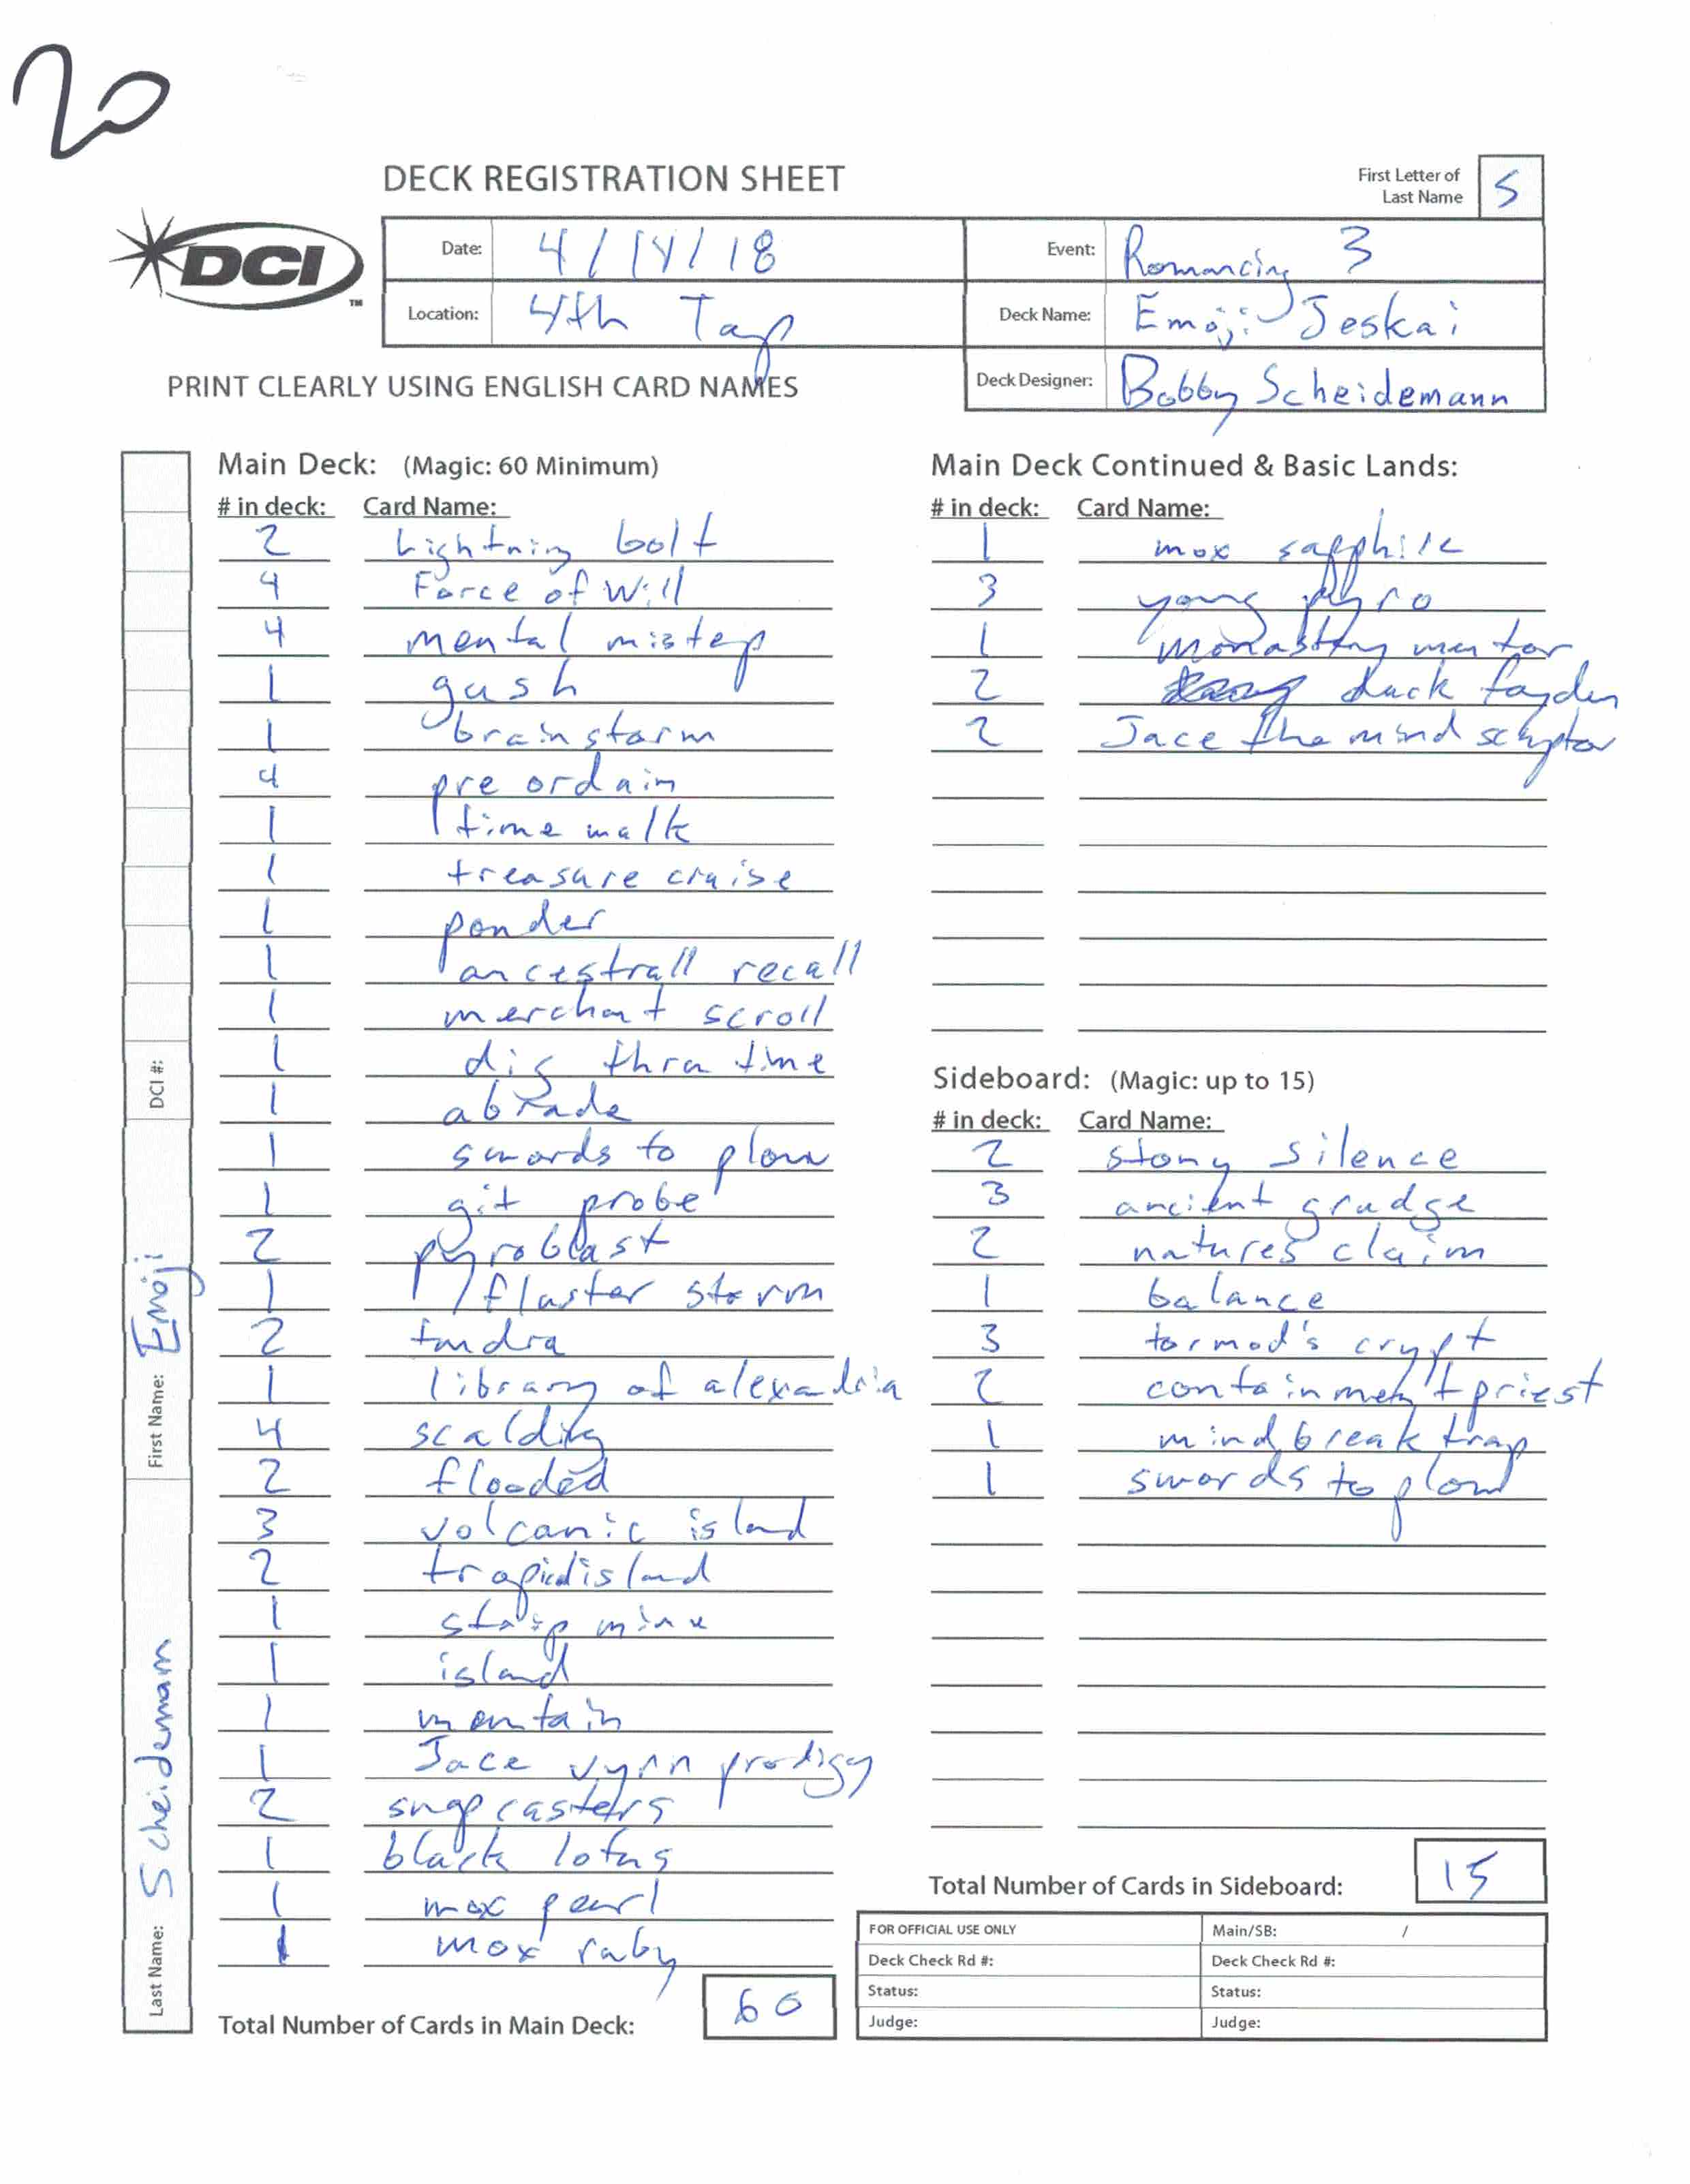 20
DECK REGISTRATION SHEET
First Letter of Last Name S
DCI TM
Date: 4/14/18
Event: Romancing 3
Location: 4th Tap
Deck Name: Emoji Jeskai
PRINT CLEARLY USING ENGLISH CARD NAMES
Deck Designer: Bobby Scheidemann
Main Deck: (Magic: 60 Minimum)
# in deck: Card Name:
2 Lightning bolt
4 Force of Will
4 mental mistep
1 gush
1 brainstorm
4 pre ordain
1 time walk
1 treasure cruise
1 ponder
1 ancestrall recall
1 merchant scroll
1 dig thru time
1 abrade
1 swords to plow
1 git probe
2 pyroblast
1 fluster storm
2 tundra
1 library of alexandria
4 scalding
2 flooded
3 volcanic island
2 tropical island
1 strip mine
1 island
1 mountain
1 Jace vynn prodigy
2 snapcasters
1 black lotus
1 mox pearl
1 mox ruby
Total Number of Cards in Main Deck: 60
Main Deck Continued & Basic Lands:
# in deck: Card Name:
1 mox sapphire
3 young pyro
1 monastery mentor
2 dack fayden
2 Jace the mind sculptor
Sideboard: (Magic: up to 15)
# in deck: Card Name:
2 stony silence
3 ancient grudge
2 natures claim
1 balance
3 tormod's crypt
2 containment priest
1 mindbreak trap
1 swords to plow
Total Number of Cards in Sideboard: 15
FOR OFFICIAL USE ONLY
Main/SB: /
Deck Check Rd #:
Deck Check Rd #:
Status:
Status:
Judge:
Judge:
Last Name: Scheidemann First Name: Emoji DCI #: